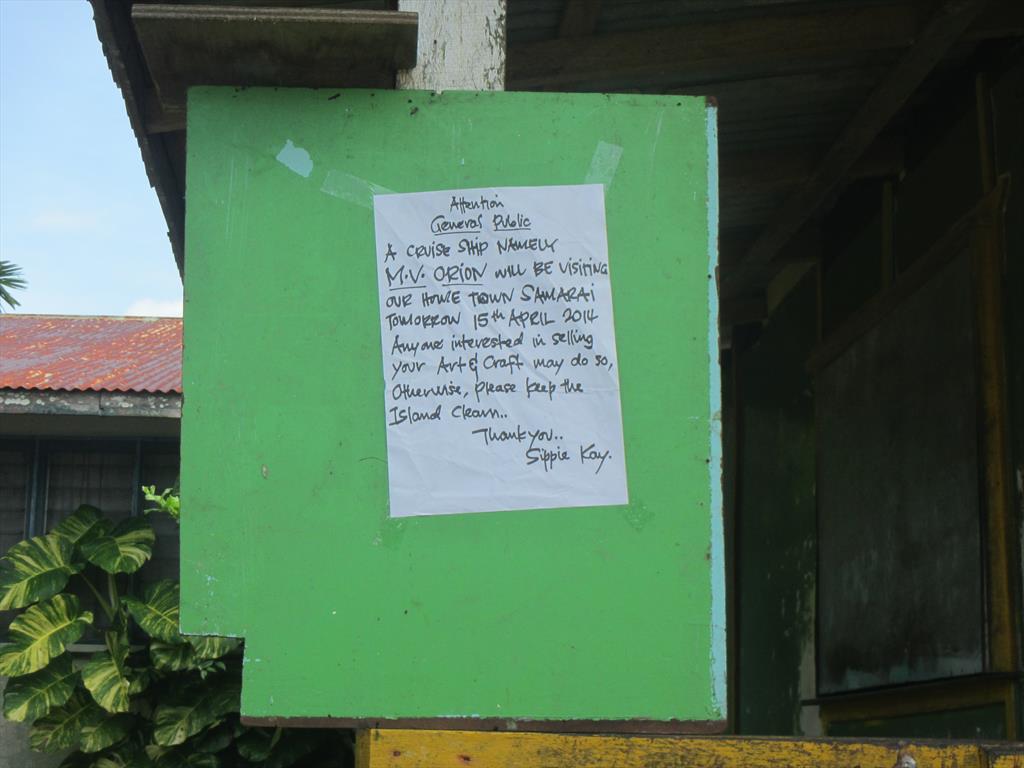 Attention
General Public
A CRUISE SHIP NAMELY
M.V. ORION WILL BE VISITING
OUR HOME TOWN SAMARAI
TOMORROW 15th APRIL 2014
Anyone interested in selling
your Art & Craft may do so,
Otherwise, please keep the
Island Clean..
Thank you..
Sippie Kay.